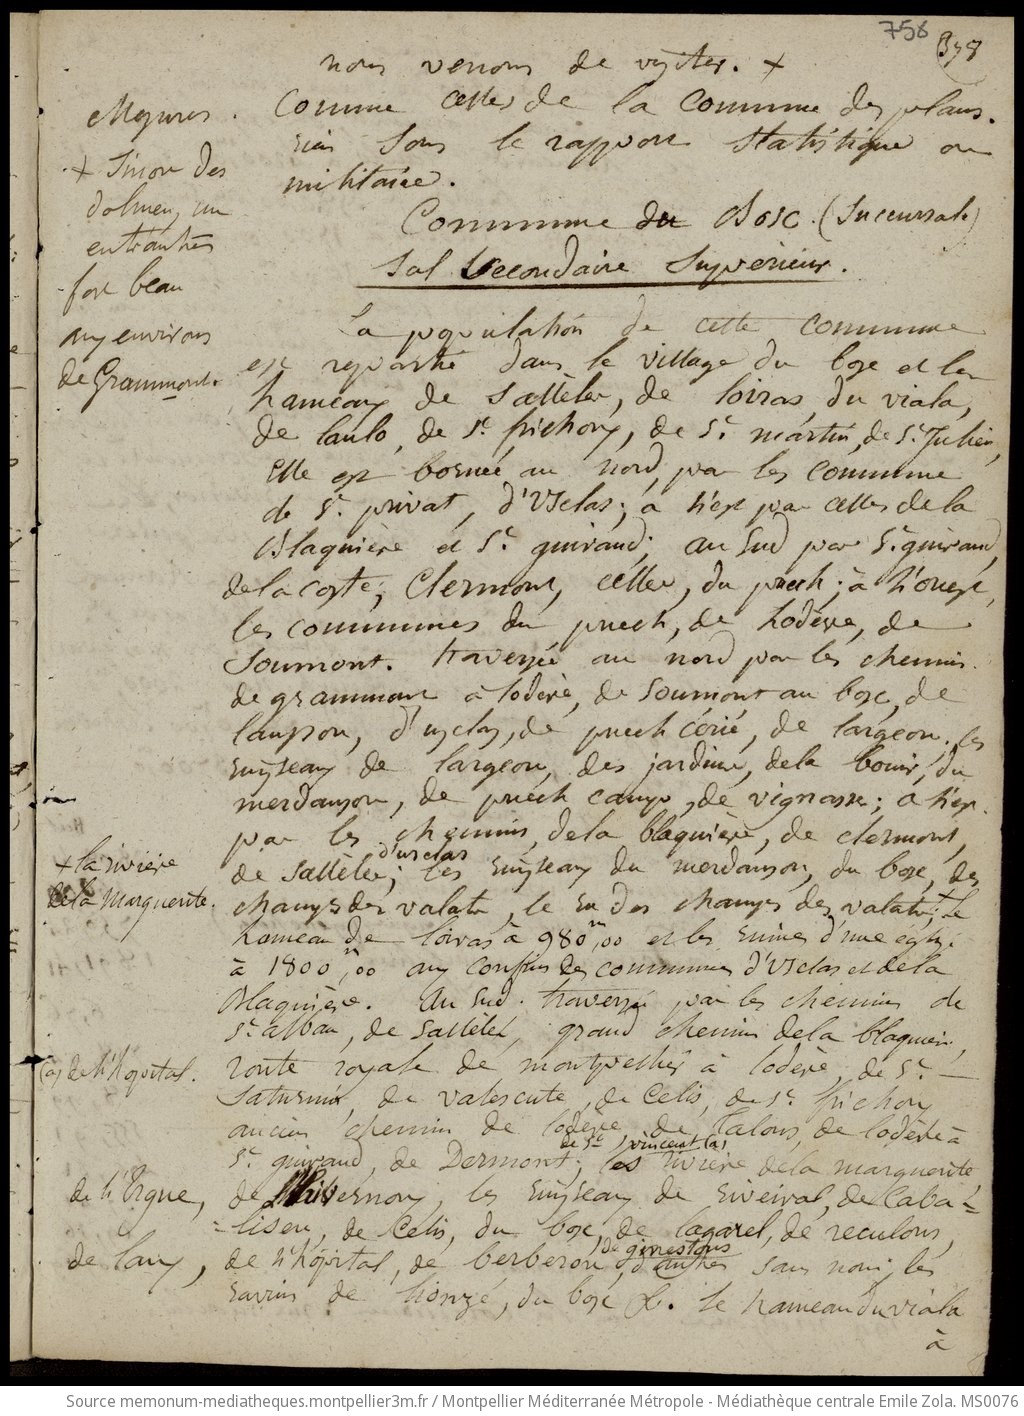 758
378
nous venons de visiter. +
Comme celles de la Commune des plans.
rien sous le rapport statistique ou
militaire.
Mesures.
+ Sinon des
dolmens, un
entr'autres
fort beau
aux environs
de Grammont.
Commune du Bosc. (Succursale)
Sol Secondaire Supérieur.
La population de cette commune
est repartie dans le village du bosc et les
hameaux de Sallèles, de loiras, du viala,
de laulo, de St. frichoux, de St. martin, de St. Julien,
Elle est bornée au nord, par les commune
de St. privat, d'Usclas; a l'est par celles de la
Blaquière et St. guiraud; au sud par St. guiraud,
de la coste; Clermont, celles, du puech; à l'ouest,
les communes du puech, de Lodève, de
Soumont. traversée au nord par les chemins.
de grammont à lodève, de soumont au bosc, de
lausson, d'usclas, de puech cérié, de largeou. les
ruisseaux de largeou, des jardins, de la , du
merdanson, de puech camp, de vignasse; a l'est.
par les chemins, de la blaquière, de clermont,
de Sallèles; d'usclas les ruisseaux du merdanson, du bosc, des
champs des valats, le ru des champs des valats; + le
+ la rivière
de la Marguerite.
hameau de loiras à 980m,00 et les ruines d'une église
à 1800m,00 aux confins des communes d'Usclas et de la
Blaquière. Au sud. traversée par les chemins de
St. alban, de Sallèles, grand chemin de la blaquière,
route royale de montpellier à lodève, de St.
(a) de l'hopital.
Saturnin, de valescute, de Celis, de St. frichoux
ancien chemin de lodève, de Salous, de lodève à
St. guiraud, de Dermont; de St. vincent (a) les rivière de la marguerite
de l'Ergue, de vernoux, les ruisseaux de riveiral, de Caba=
=lisou, de Celis, du bosc, de lagarel, de reculous,
de laux, de l'hôpital, de berberou, de ginestous d'autres sans nom; les
ravins de , du bosc &. le hameau du viala
à
Source memonum-mediatheques.montpellier3m.fr / Montpellier Méditerranée Métropole - Médiathèque centrale Emile Zola. MS0076